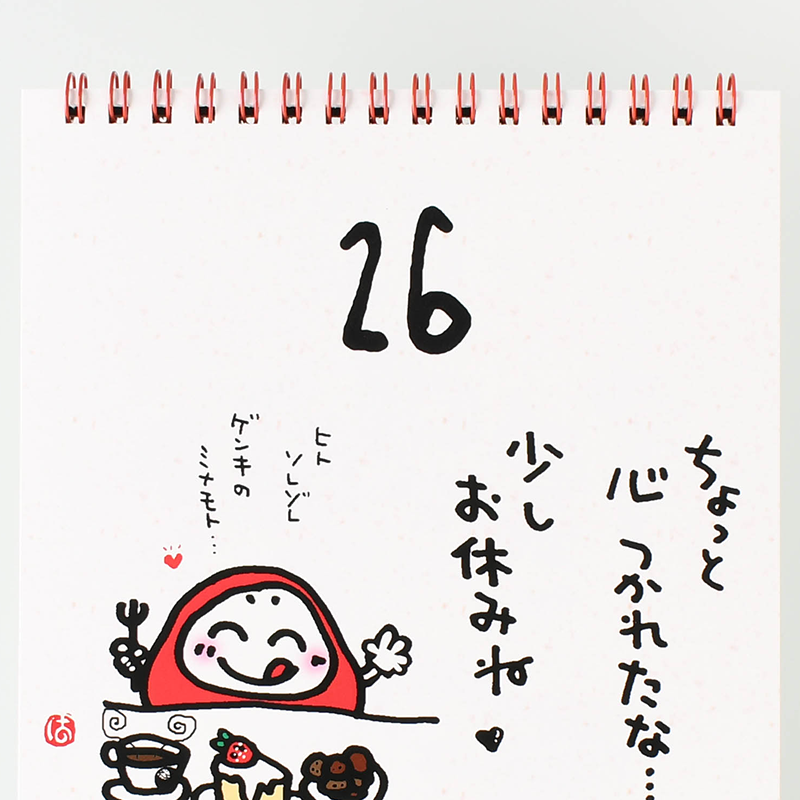 26
ちょっと
心 つかれたな…
少し
お休みね
ヒト
ソレゾレ
ゲンキの
ミナモト…
ば